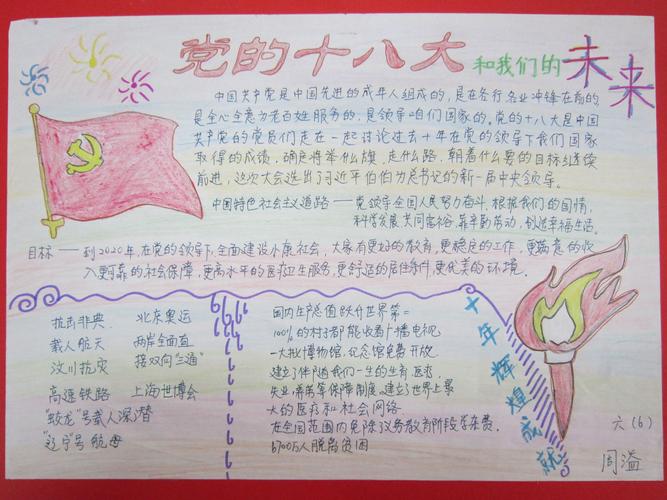 党的十八大和我们的未来
中国共产党是中国先进的成年人组成的，是在各行各业冲锋在前的，
是全心全意为老百姓服务的，是领导咱们国家的，党的十八大是中国
共产党的党员们走在一起讨论过去十年在党的领导下我们国家
取得的成绩，确定将举什么旗，走什么路，朝着什么累的目标继续
前进，这次大会选出了习近平伯伯为总书记的新一届中央领导。
中国特色社会主义道路——党领导全国人民努力奋斗，根据我们的国情，
科学发展，共同富裕，靠辛勤劳动，创造幸福生活。
目标——到2020年，在党的领导下，全面建设小康社会，大家有更好的教育，更稳定的工作，更满意的收
入更可靠的社会保障，更高水平的医疗卫生服务，更舒适的居住条件，更优美的环境。
抗击非典 北京奥运
载人航天 两岸全面直
汶川抗灾 接双向"三通"
高速铁路 上海世博会
"蛟龙"号载人深潜
"辽宁"号航母
国内生产总值跃升世界第二
100%的村子都能收看广播电视
一大批博物馆，纪念馆免费开放
建立了伴随我们一生的生育医疗，
失业，养老等保障制度。建立了世界上最
大的医疗和社会网络
在全国范围内免除了义务教育阶段学杂费。
6700万人脱离贫困
十年辉煌成就
六（6）
周溢